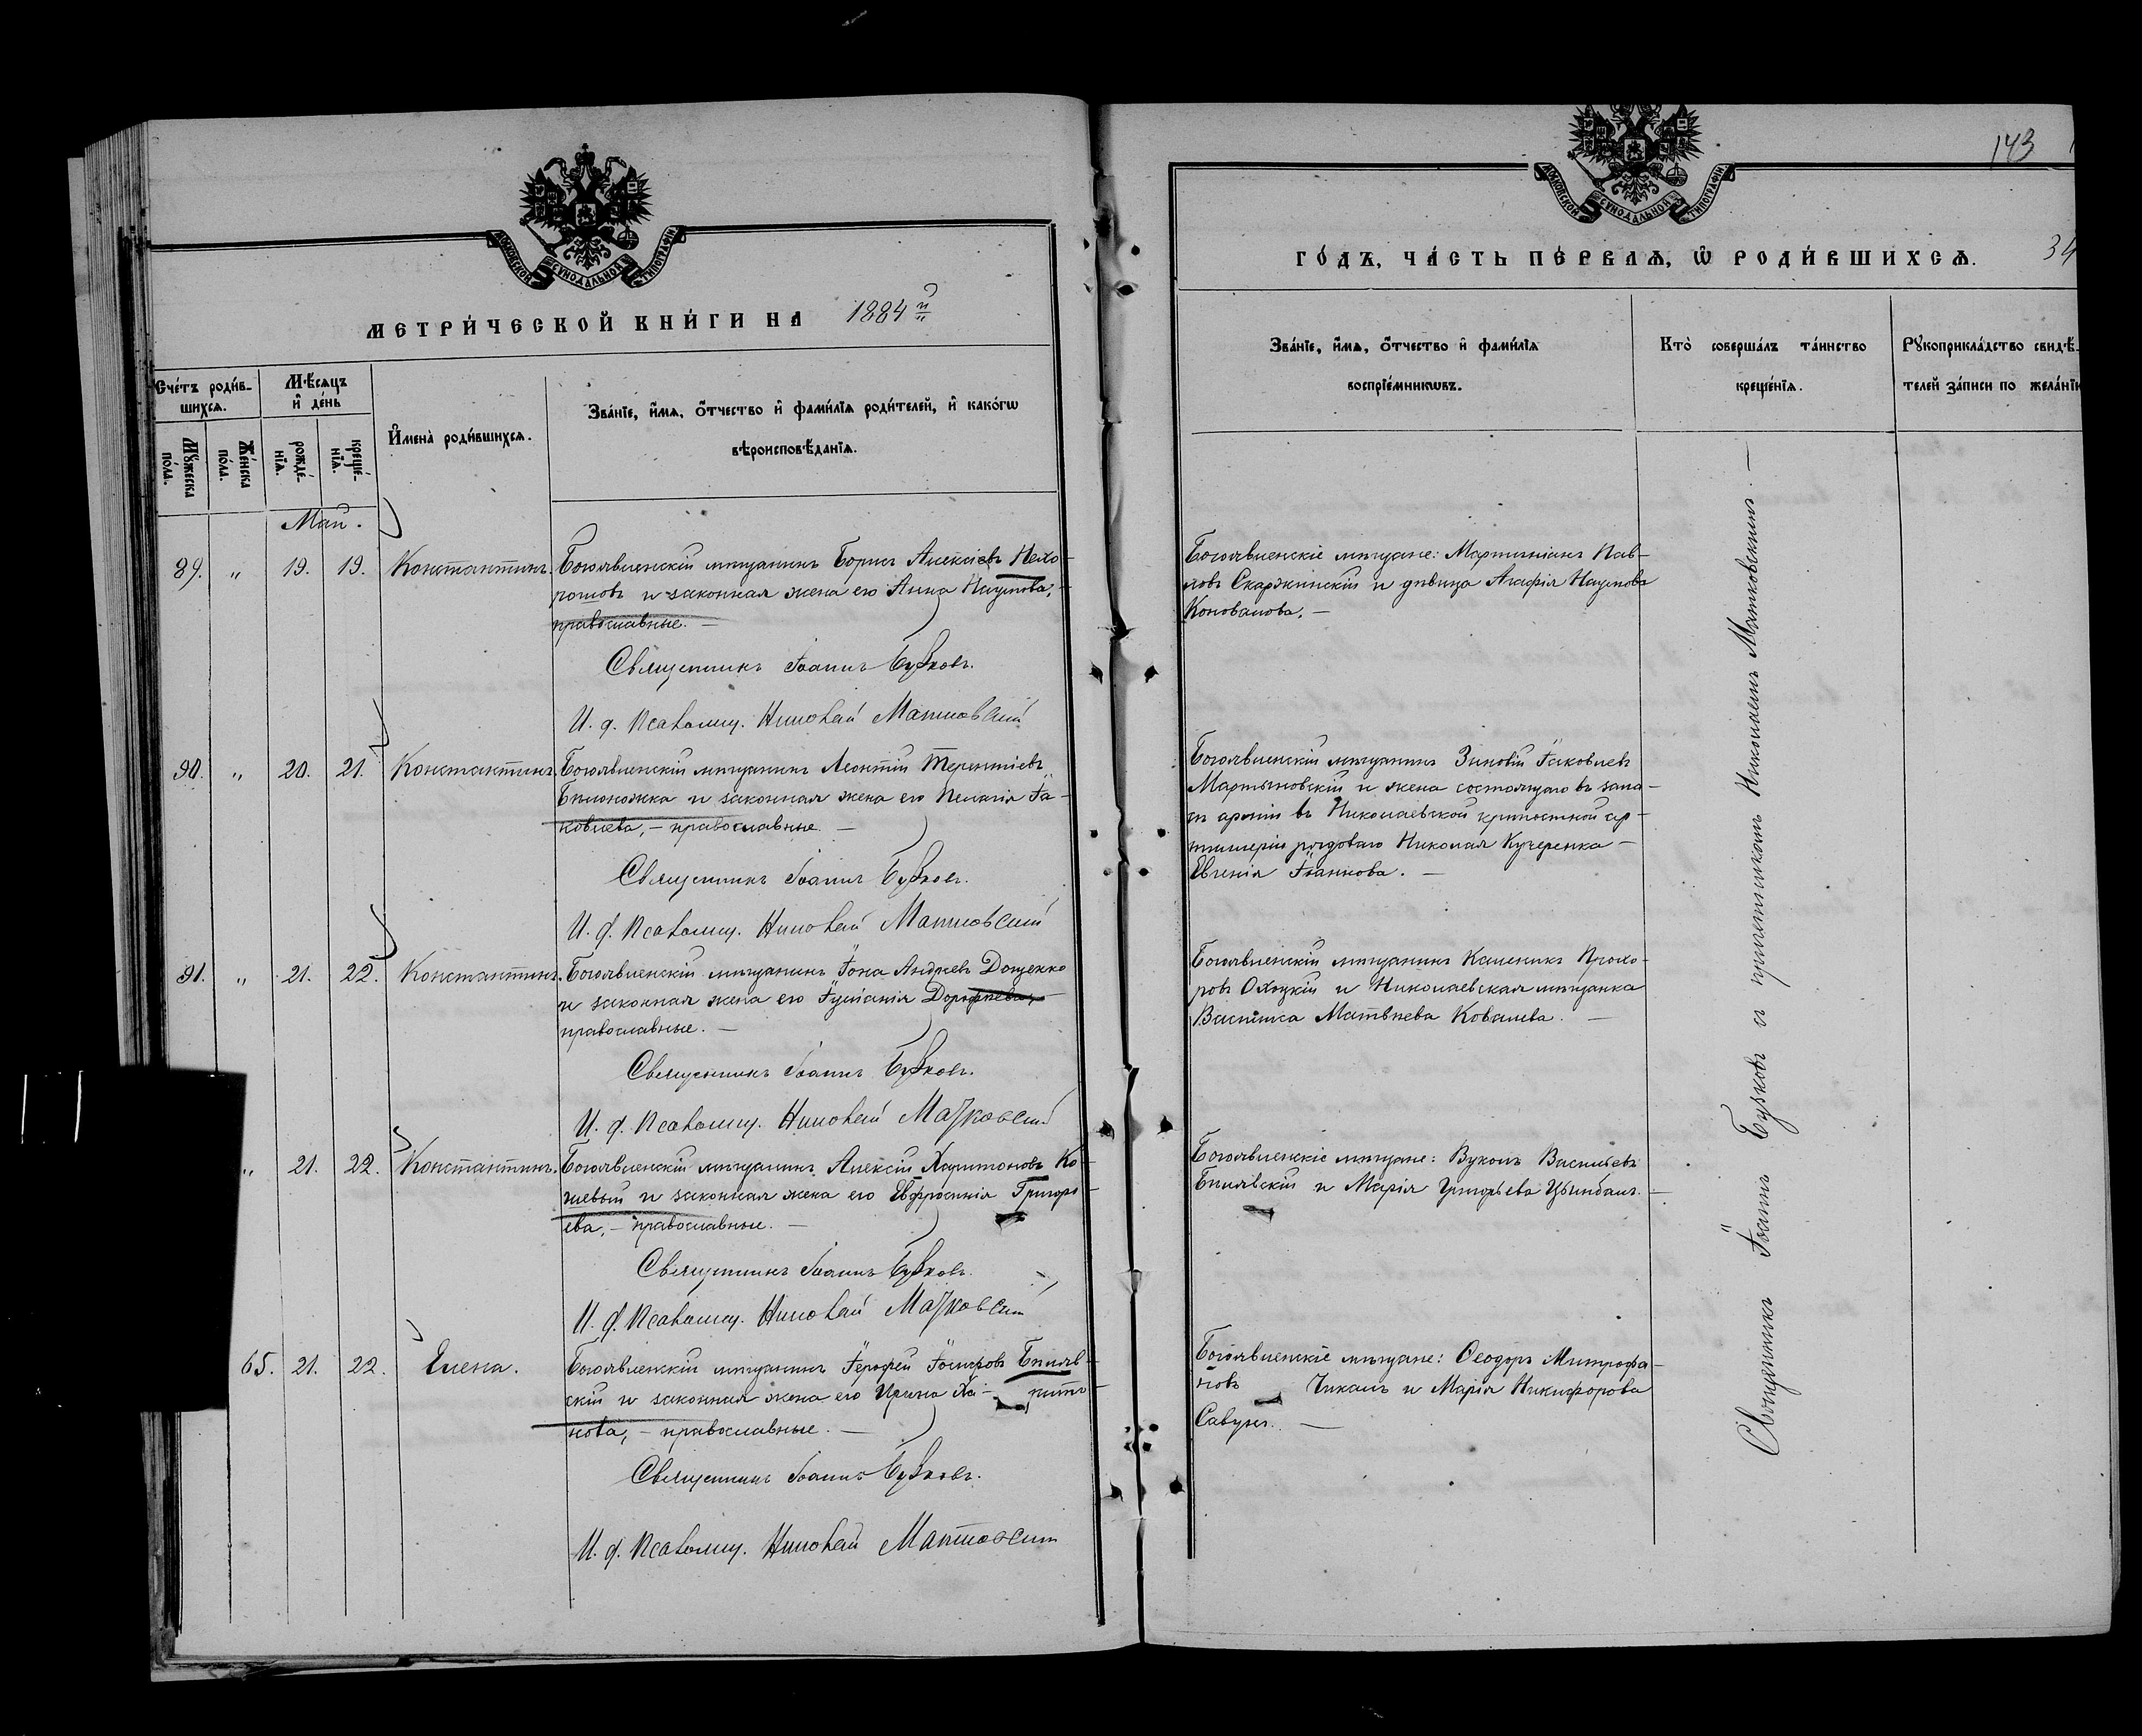 МОСКОВСКОЙ СѴНОДАЛЬНОЙ ТИПОГРАФІИ
МЕТРИ́ЧЕСКОЙ КНИ́ГИ НА 1884й
Сче́тъ роди́в-
шихсѧ.
Мѣ́сѧцъ
и҆ де́нь
Мꙋ́жеска по́ла.
Же́нска по́ла.
рожде́-нїѧ.
креще́-нїѧ.
И҆мена̀ роди́вшихсѧ.
Зва́нїе, и҆́мѧ, ѻ҆́тчество и҆ фами́лїѧ роди́телей, и҆ како́гѡ
вѣроисповѣ́данїѧ.
Май.
89. „ 19. 19. Константинъ. Богоявленскій мѣщанинъ Борисъ Алексіевъ Нехо-
рошовъ и законная жена его Анна Наумова,
православные. —
Священникъ Іоаннъ Бузковъ.
И. д. Псаломщ. Николай Матковскій
90. „ 20. 21. Константинъ. Богоявленскій мѣщанинъ Леонтій Терентіевъ
Бѣлоножка и законная жена его Пелагія Іа-
ковлева, — православные. —
Священникъ Іоаннъ Бузковъ.
И. д. Псаломщ. Николай Матковскій
91. „ 21. 22. Константинъ. Богоявленскій мѣщанинъ Іона Андреевъ Доценко
и законная жена его Іуліанія Дорофеева,
православные. —
Священникъ Іоаннъ Бузковъ.
И. д. Псаломщ. Николай Матковскій
„ 21. 22. Константинъ. Богоявленскій мѣщанинъ Алексій Харитоновъ Ко-
шевый и законная жена его Евфросинія Григорі-
ева, — православные. —
Священникъ Іоаннъ Бузковъ.
И. д. Псаломщ. Николай Матковскій
65. 21. 22. Елена. Богоявленскій мѣщанинъ Іерофей Іосифовъ Бѣляв-
скій и законная жена его Ирина Ха- рито-
нова, — православные. —
Священникъ Іоаннъ Бузковъ.
И. д. Псаломщ. Николай Матковскій
143
МОСКОВСКОЙ СѴНОДАЛЬНОЙ ТИПОГРАФІИ
ГО́ДЪ, ЧА́СТЬ ПЕ́РВАѦ, Ѡ҆ РОДИ́ВШИХСѦ. 34
Зва́нїе, и҆́мѧ, ѻ҆́тчество и҆ фами́лїѧ
воспрїе́мникѡвъ.
Кто̀ соверша́лъ та́инство
креще́нїѧ.
Рꙋкоприкла́дство свидѣ́-
телей за́писи по жела́нїю
Богоявленскіе мѣщане: Мартиніанъ Пав-
ловъ Скаржинскій и дѣвица Агафія Наумова
Коновалова. —
Богоявленскій мѣщанинъ Зиновій Іаковлевъ
Мартыновскій и жена состоящаго въ запа-
сѣ арміи въ Николаевской крѣпостной ар-
тиллеріи рядоваго Николая Кучеренка —
Евгенія Іоаннова. —
Богоявленскій мѣщанинъ Калиникъ Прохо-
ровъ Охоцкій и Николаевская мѣщанка
Василиса Матвѣева Ковалева. —
Богоявленскіе мѣщане: Вуколъ Васильевъ
Бѣлявскій и Марія Григорьева Цымбалъ. —
Богоявленскіе мѣщане: Ѳеодоръ Митрофа-
новъ Чикалъ и Марія Никифорова
Савунъ. —
Священникъ Іоаннъ Бузковъ съ причетникомъ Николаемъ Матковскимъ. —